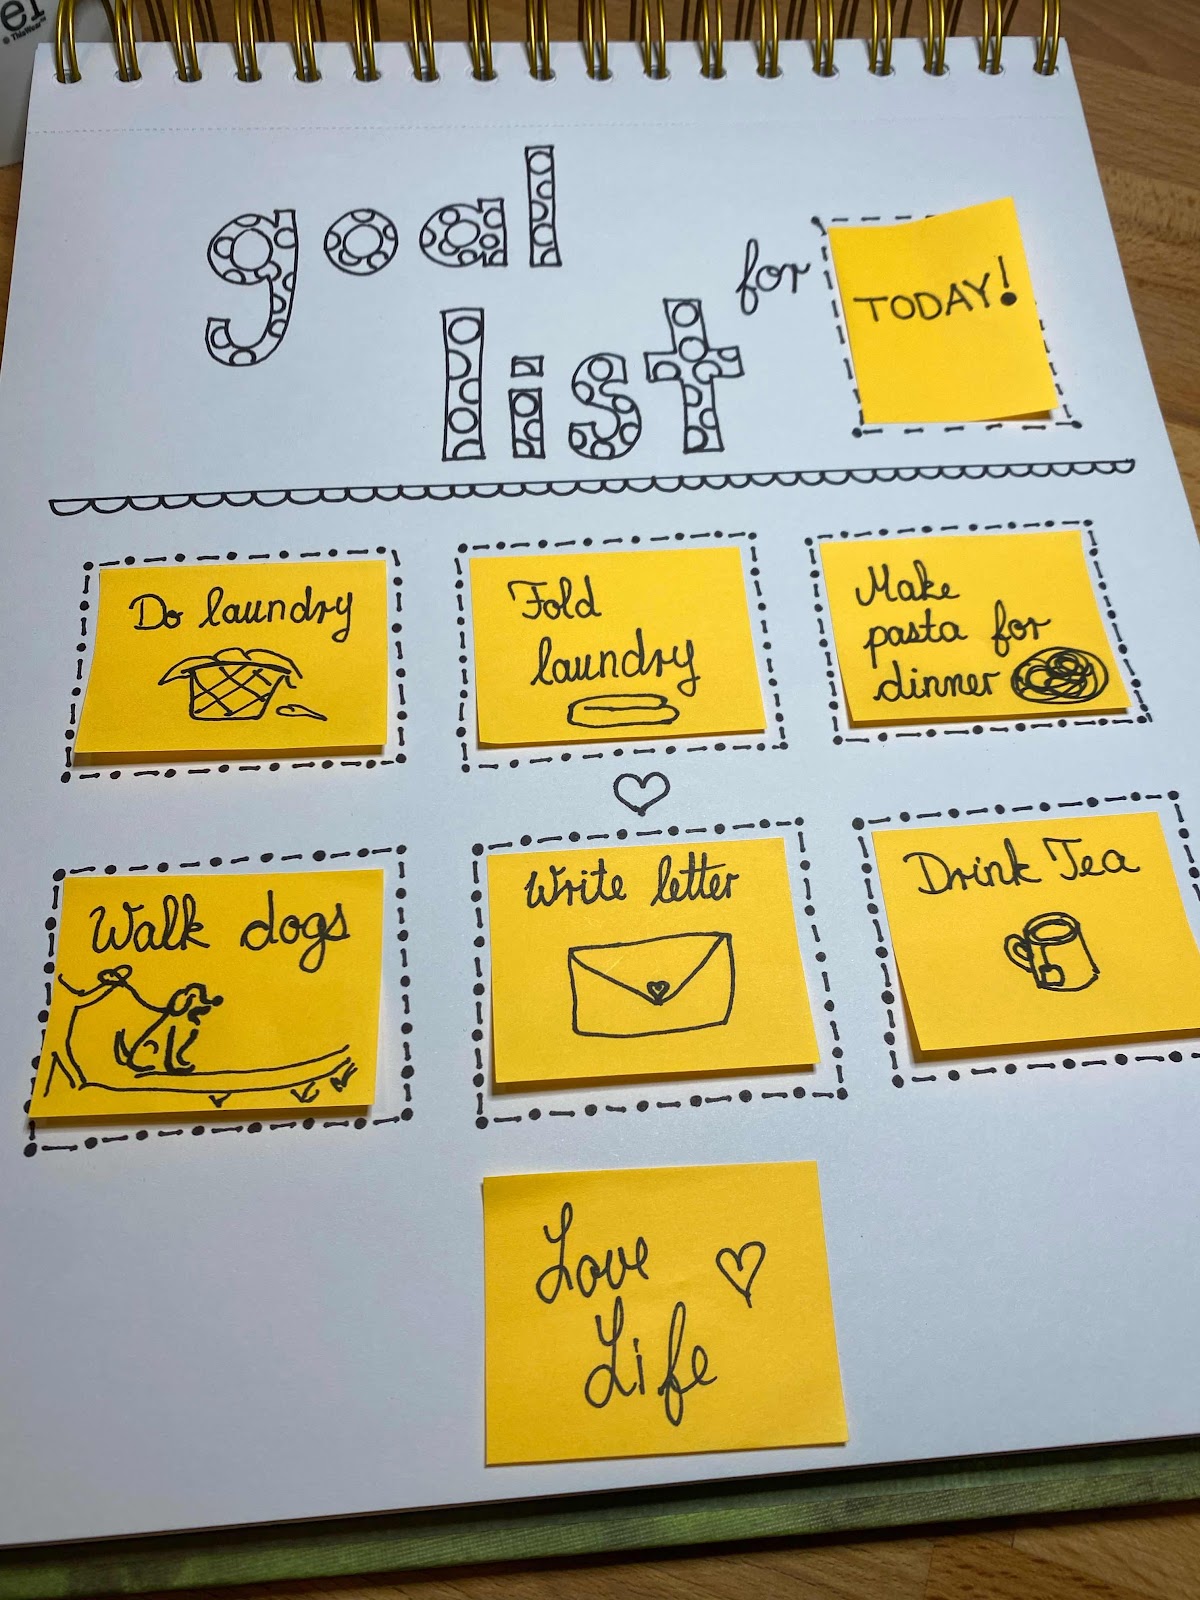 goal
list
for
TODAY!
Do laundry
Fold
laundry
Make
pasta for
dinner
Walk dogs
Write letter
Drink Tea
Love
Life